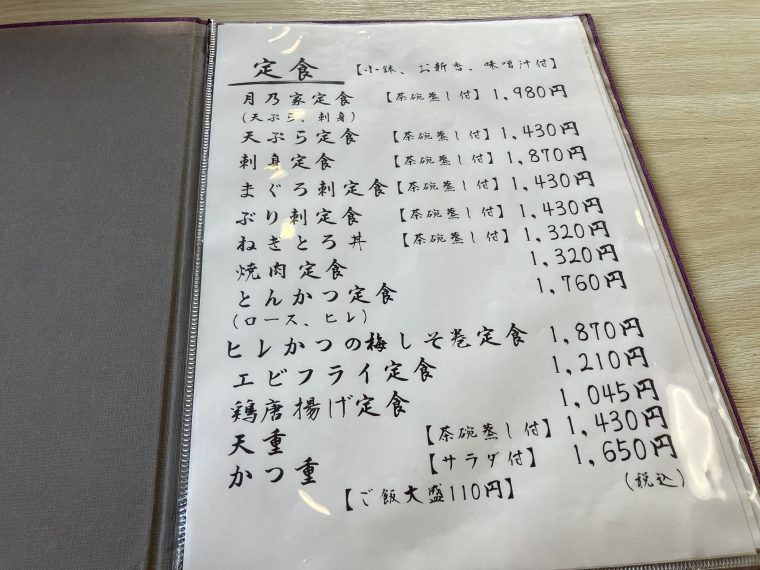 定食 【小鉢、お新香、味噌汁付】
月乃家定食 【茶碗蒸し付】 1,980円
(天ぷら、刺身)
天ぷら定食 【茶碗蒸し付】 1,430円
刺身定食 【茶碗蒸し付】 1,870円
まぐろ刺定食 【茶碗蒸し付】 1,430円
ぶり刺定食 【茶碗蒸し付】 1,430円
ねぎとろ丼 【茶碗蒸し付】 1,320円
焼肉定食 1,320円
とんかつ定食 1,760円
(ロース、ヒレ)
ヒレかつの梅しそ巻定食 1,870円
エビフライ定食 1,210円
鶏唐揚げ定食 1,045円
天重 【茶碗蒸し付】 1,430円
かつ重 【サラダ付】 1,650円
【ご飯大盛110円】 (税込)